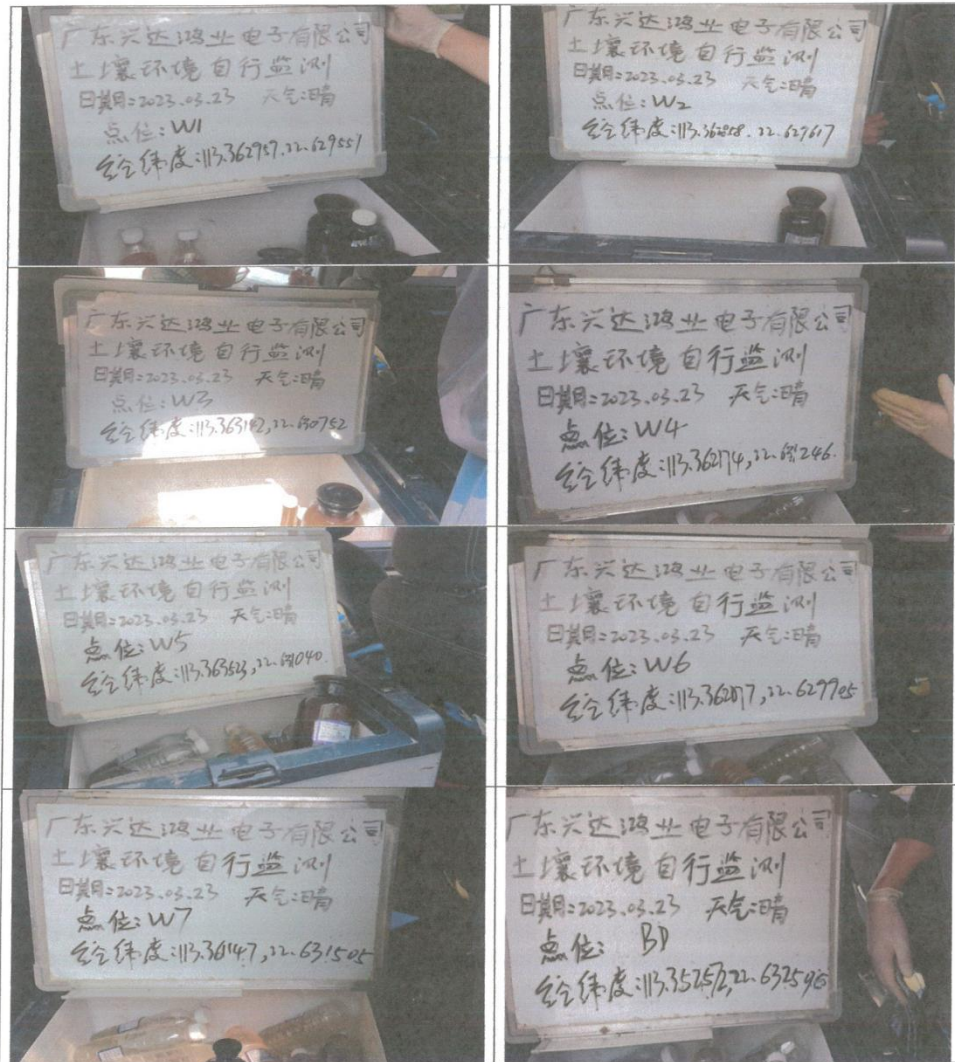 广东兴达鸿业电子有限公司
土壤环境自行监测
日期:2023.03.23 天气:晴
点位:W1
经纬度:113.362957,22.629551
广东兴达鸿业电子有限公司
土壤环境自行监测
日期:2023.03.23 天气:晴
点位:W2
经纬度:113.362858,22.629617
广东兴达鸿业电子有限公司
土壤环境自行监测
日期:2023.03.23 天气:晴
点位:W3
经纬度:113.363142,22.630752
广东兴达鸿业电子有限公司
土壤环境自行监测
日期:2023.03.23 天气:晴
点位:W4
经纬度:113.362174,22.631246
广东兴达鸿业电子有限公司
土壤环境自行监测
日期:2023.03.23 天气:晴
点位:W5
经纬度:113.363523,22.631040
广东兴达鸿业电子有限公司
土壤环境自行监测
日期:2023.03.23 天气:晴
点位:W6
经纬度:
广东兴达鸿业电子有限公司
土壤环境自行监测
日期:2023.03.23 天气:晴
点位:W7
经纬度:113.36147,22.631505
广东兴达鸿业电子有限公司
土壤环境自行监测
日期:2023.03.23 天气:晴
点位: BD
经纬度: